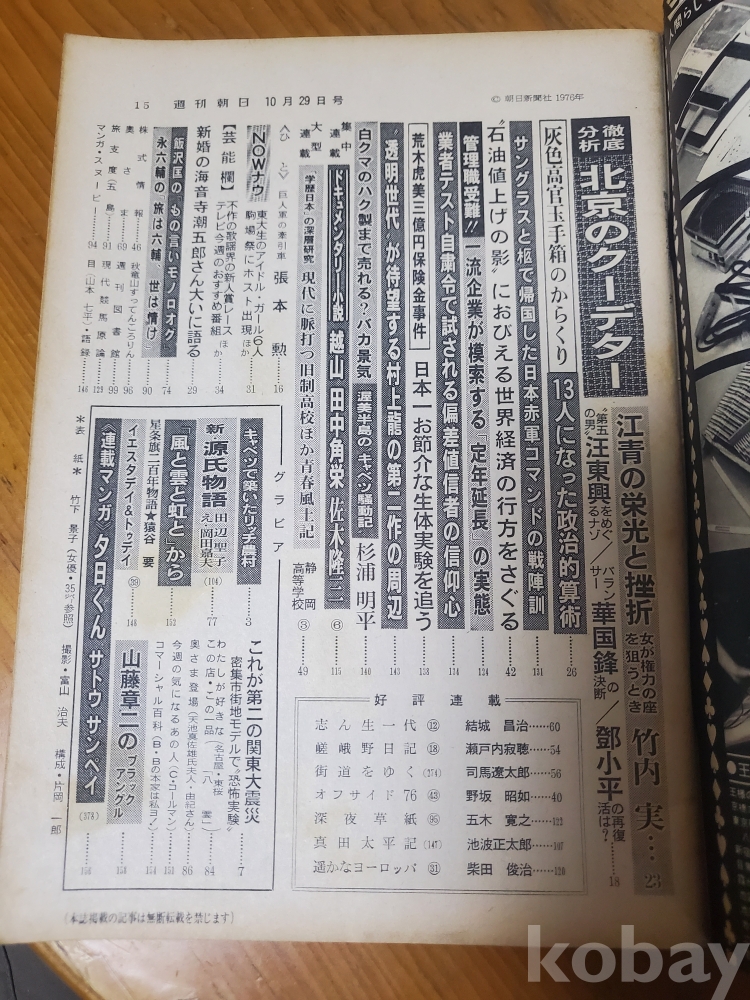 15 週刊朝日 10月29日号
© 朝日新聞社 1976年
徹底分析 北京のクーデター
江青の栄光と挫折 女が権力の座を狙うとき 竹内 実…23
“第五の男”汪東興をめぐるナゾ／バランサー 華国鋒の決断／鄧小平の再復活は？ 18
灰色高官玉手箱のからくり 13人になった政治的算術 26
サングラスと柩で帰国した日本赤軍コマンドの戦陣訓 131
“石油値上げの影”におびえる世界経済の行方をさぐる 42
管理職受難!! 一流企業が模索する「定年延長」の実態 134
業者テスト自粛令で試される偏差値信者の信仰心 114
荒木虎美三億円保険金事件 日本一お節介な生体実験を追う 138
“透明世代”が待望する村上龍の第二作の周辺 143
白クマのハク製まで売れる？バカ景気 渥美半島のキャベツ騒動記 杉浦 明平 140
集中連載 ドキュメンタリー小説 越山 田中角栄 佐木隆三 ⑥ 115
大型連載 「学歴日本」の深層研究 現代に脈打つ旧制高校ほか青春風土記 静岡高等学校 ③ 49
〈ひと〉 巨人軍の牽引車 張本 勲 16
NOWナウ 東大生のアイドル・ガール6人 駒場祭にホスト出現 ほか 31
【芸能欄】 不作の歌謡界の新人賞レース テレビ今週のおすすめ番組 ほか 34
新婚の海音寺潮五郎さん大いに語る 29
飯沢匡の「もの言いモノローグ」 74
永六輔の「旅は六輔、世は情け」 90
株式情報 46
秋竜山すってんころりん 96
奥さま 69
週刊図書館 99
旅支度（五島） 91
現代競馬原論 128
マンガ・スヌーピー 94
目（山本七平）・語録 146
グラビア
キャベツで築いたリッチ農村 3
新 源氏物語 田辺聖子 え・岡田嘉夫 (104) 77
「風と雲と虹と」から 152
星条旗二百年物語★猿谷 要
イエスタデイ&トゥデイ 148
〈連載マンガ〉夕日くん サトウ サンペイ (378) 156
これが第二の関東大震災 密集市街地モデルで“恐怖実験” 7
わたしが好きなこの店・この一品（名古屋・東桜「八雲」） 84
奥さま登場（天池真佐雄氏夫人・由紀さん） 86
今週の気になるあの人（C・コールマン） 151
コマーシャル百科（B・Bの本家は私ヨン） 154
山藤章二のブラックアングル 158
＊表紙＊ 竹下 景子（女優・35㌻参照） 撮影・富山 治夫 構成・片岡 一郎
好評連載
志ん生一代 ⑫ 結城 昌治……60
嵯峨野日記 ⑱ 瀬戸内寂聴……54
街道をゆく (274) 司馬遼太郎……56
オフサイド76 ㊸ 野坂 昭如……40
深夜草紙 (95) 五木 寛之……122
真田太平記 (147) 池波正太郎……107
遥かなヨーロッパ ㉛ 柴田 俊治……120
（本誌掲載の記事は無断転載を禁じます）
kobay